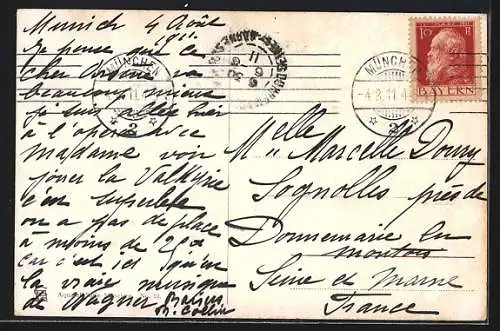 Munich 4 Août
1911
Je pense que ce
cher va
beaucoup mieux
je suis allée hier
à l'opéra avec
madame voir
jouer la Valkyrie
c'est superbe
on a pas de place
à moins de
car c'est ici qu'on
la vraie musique
de Wagner
MÜNCHEN
2
MÜNCHEN
-4.8.11.4
2
10
BAYERN
Melle
Marcelle
Sognolles près de
Donnemarie en
montois
Seine et Marne
France